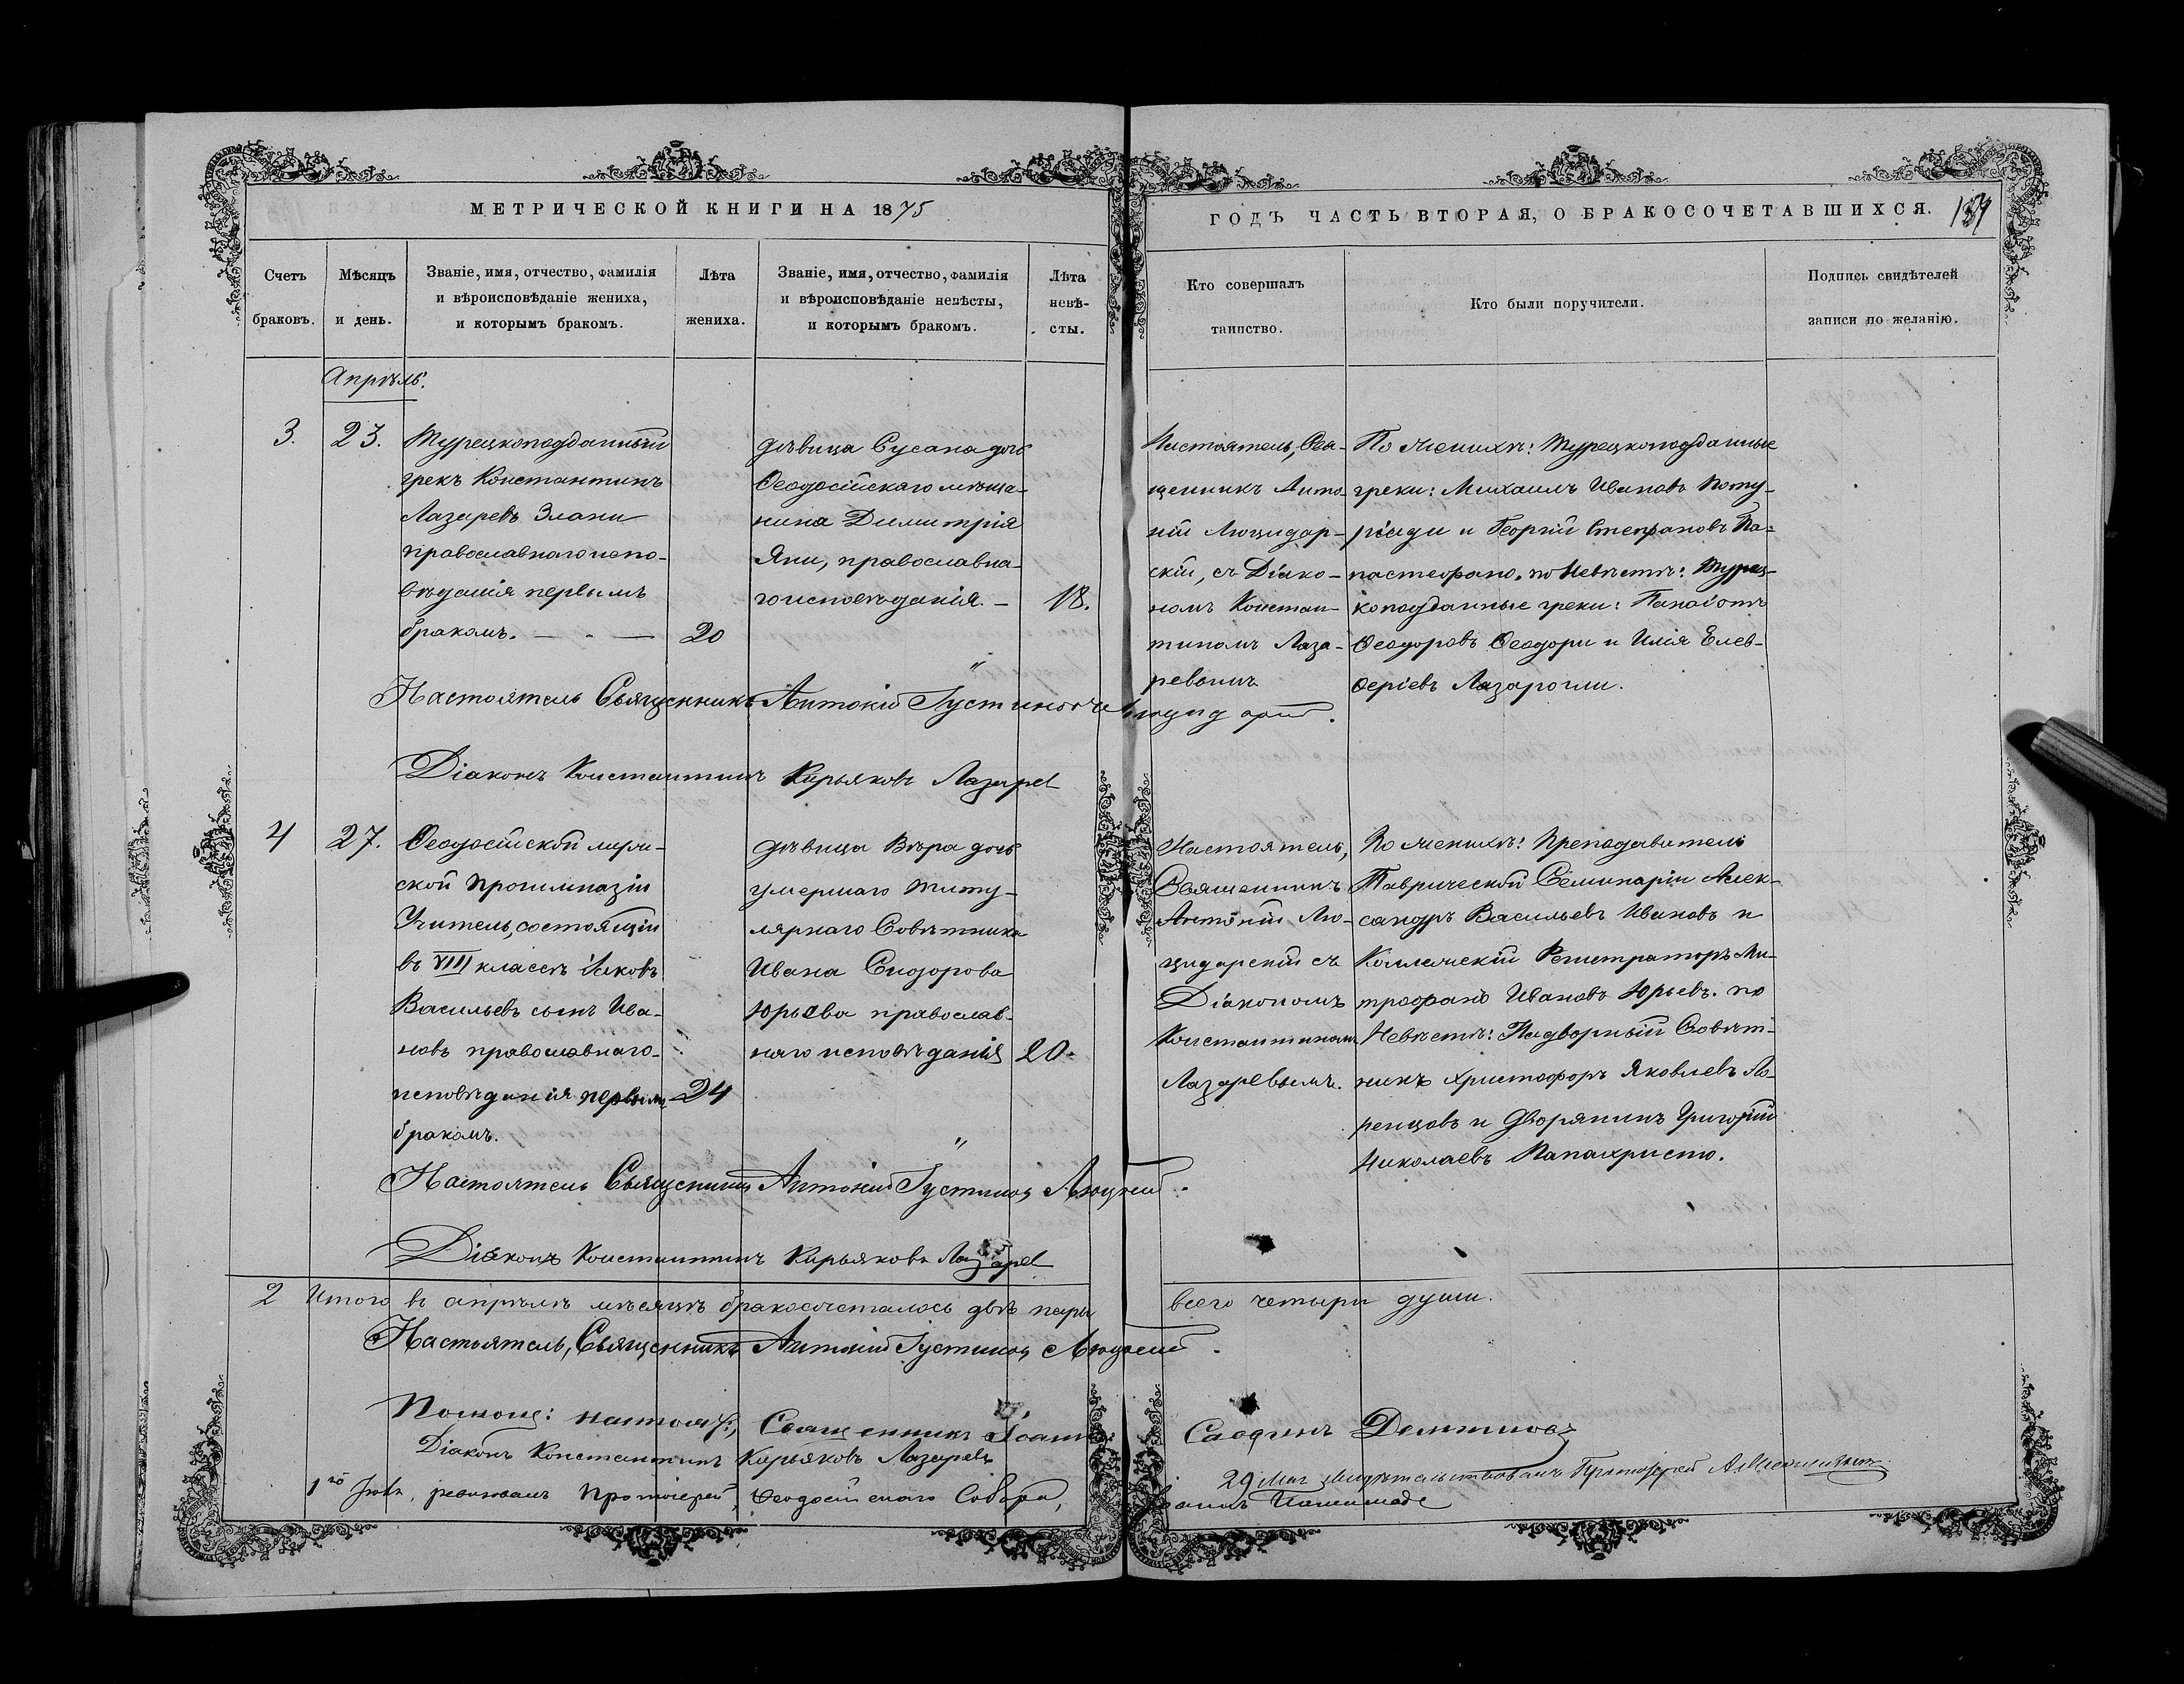 МЕТРИЧЕСКОЙ КНИГИ НА 1875
ГОДЪ ЧАСТЬ ВТОРАЯ, О БРАКОСОЧЕТАВШИХСЯ.
Счетъ
браковъ.
Мѣсяцъ
и день.
Званіе, имя, отчество, фамилія
и вѣроисповѣданіе жениха,
и которымъ бракомъ.
Лѣта
жениха.
Званіе, имя, отчество, фамилія
и вѣроисповѣданіе невѣсты,
и которымъ бракомъ.
Лѣта
невѣ-
сты.
Кто совершалъ
таинство.
Кто были поручители.
Подпись свидѣтелей
записи по желанію.
Апрѣль.
3.
23.
Турецкоподданный
грекъ Константинъ
Лазаревъ Злани
православнаго испо-
вѣданія первымъ
бракомъ.
20
дѣвица Сусана дочь
Ѳеодосійскаго мѣща-
нина Димитрія
Яни, православна-
го исповѣданія. –
18.
Настоятель, Свя-
щенникъ Анто-
ній Люцидар-
скій, съ Діако-
номъ Констан-
тиномъ Лаза-
ревымъ
По женихѣ: Турецкоподданные
греки: Михаилъ Ивановъ Поту-
ріади и Георгій Стефановъ Па-
пастефано. по Невѣстѣ: Турец-
коподданные греки: Панаіотъ
Ѳеодоровъ Ѳеодори и Илія Елев-
ѳеріевъ Лазарогли.
Настоятель Священникъ Антоній Іустиновъ
Діаконъ Константинъ Кирьяковъ Лазарев
4
27.
Ѳеодосійской мужи-
ской Прогимназіи
Учитель, состоящій
въ VIII классѣ Яковъ
Васильевъ сынъ Ива-
новъ православнаго
исповѣданія первымъ
бракомъ.
24
дѣвица Вѣра дочь
умершаго Титу-
лярнаго Совѣтника
Ивана Сидорова
Юрьева православ-
наго исповѣданія
20.
Настоятель,
Священникъ
Антоній Лю-
цидарскій съ
Діакономъ
Константиномъ
Лазаревымъ.
По женихѣ: Преподаватель
Таврической Семинаріи Алек-
сандръ Васильевъ Ивановъ и
Коллежскій Регистраторъ Ми-
трофанъ Ивановъ Юрьевъ. по
Невѣстѣ: Надворный Совѣт-
никъ Христофоръ Яковлевъ Ло-
ренцовъ и Дворянинъ Григорій
Николаевъ Папахристо.
Настоятель Священникъ Антоній Іустиновъ
Діаконъ Константинъ Кирьяковъ Лазарев
2 Итого въ апрѣлѣ мѣсяцѣ бракосочеталось двѣ пары
всего четыри души.
Настоятель, Священникъ Антоній Іустиновъ
Священникъ Іоаннъ
Діаконъ Константинъ Кирьяковъ Лазаревъ
29 Мая свидѣтельствовалъ Протоіерей
ревизовалъ Протоіерей, Ѳеодосійскаго Собора,